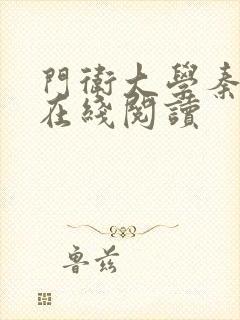 門衛大學秦
在綫閱讀
魯兹